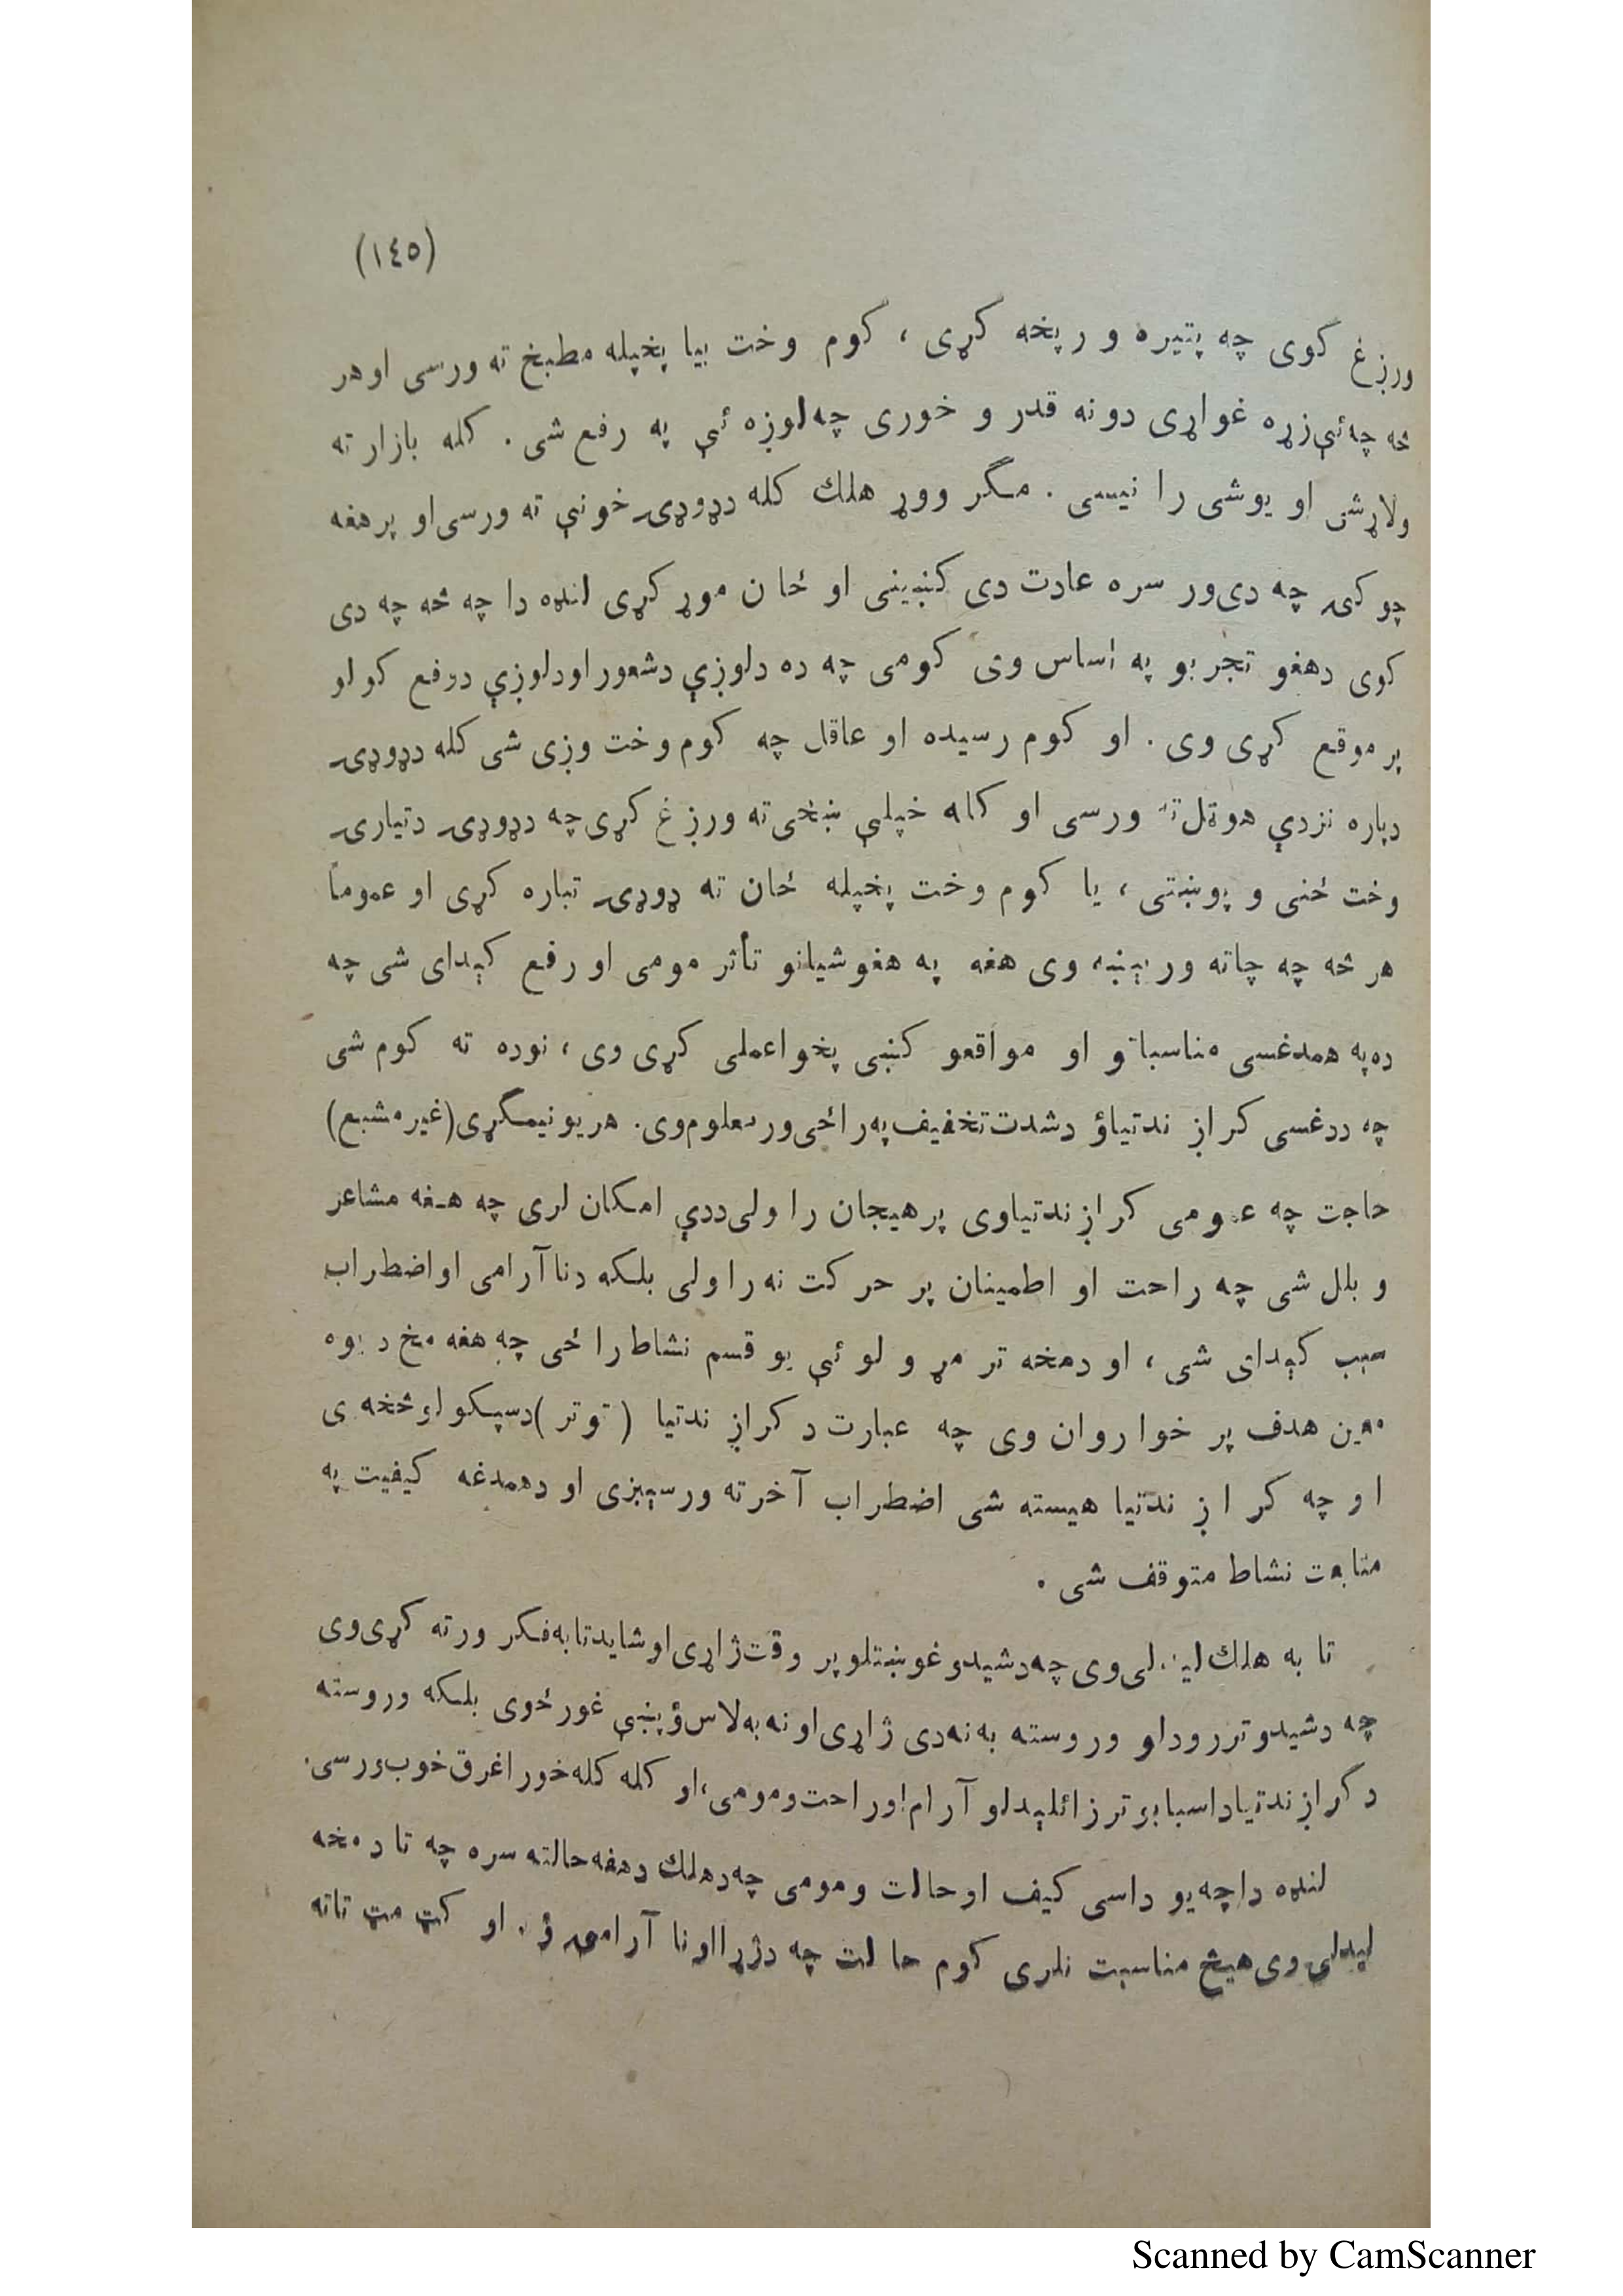 (١٤٥)
ورږغ کوی چه پتیره ورپخه کړی ، کوم وخت بیا پخپله مطبخ ته ورسی اوهر
څه چه ئې زړه غواړی دونه قدر و خوری چه لوږه ئې په رفع شی . کله بازار ته
ولاړشی او یوشی را نیسی . مگر ووړ هلك کله دډوډۍ خونې ته ورسی او پرهغه
چوکۍ چه دی ورسره عادت دی کښینی او ځان موړ کړی لنډه دا چه څه چه دی
کوی دهغو تجربو په اساس وی کومی چه ده دلوږې دشعور اودلوږې درفع کولو
پر موقع کړی وی . او کوم رسیده او عاقل چه کوم وخت وږی شی کله دډوډۍ
دپاره نزدې هوټل ته ورسی او کله خپلې ښځی ته ورږغ کړی چه دډوډۍ دتیارۍ
وخت ځنی و پوښتی ، یا کوم وخت پخپله ځان ته ډوډۍ تیاره کړی او عموماً
هر څه چه چاته ورپېښه وی هغه په هغو شیانو تأثر مومی او رفع کېدای شی چه
ده په همدغسی مناسباتو او مواقعو کښی پخوا عملی کړی وی ، نوده ته کوم شی
چه ددغسی کراږندتیاؤ دشدت تخفیف په راځی ورمعلوم وی . هریو نیمگړی (غیرمشبع)
حاجت چه عمومی کراږندتیاوی پرهیجان راولی ددې امکان لری چه هغه مشاعر
وبلل شی چه راحت او اطمینان پر حرکت نه راولی بلکه دنا آرامی او اضطراب
سبب کېدای شی ، او دمخه تر مړولو ئې یو قسم نشاط راځی چه هغه مخ د یوه
معین هدف پر خوا روان وی چه عبارت د کراږندتیا (توتر) دسپکولو څخه ی
او چه کراږندتیا هیسته شی اضطراب آخرته ورسېږی او دهمدغه کیفیت په
متابعت نشاط متوقف شی .
تا به هلك لیدلی وی چه دشیدو غوښتلو پر وقت ژاړی او شایدتا به فکر ورته کړی وی
چه دشیدو تررودلو وروسته به نه دی ژاړی او نه به لاس ؤ پښې غورځوی بلکه وروسته
د کراږندتیا داسبابو تر زائلېدلو آرام اوراحت ومومی ، او کله کله خورا غرق خوب ورسی .
لنډه داچه یو داسی کیف اوحالت ومومی چه دهلك دهغه حالته سره چه تا دمخه
لیدلی وی هیڅ مناسبت نلری کوم حالت چه دژړا اونا آرامۍ ؤ . او کټ مټ تاته
Scanned by CamScanner